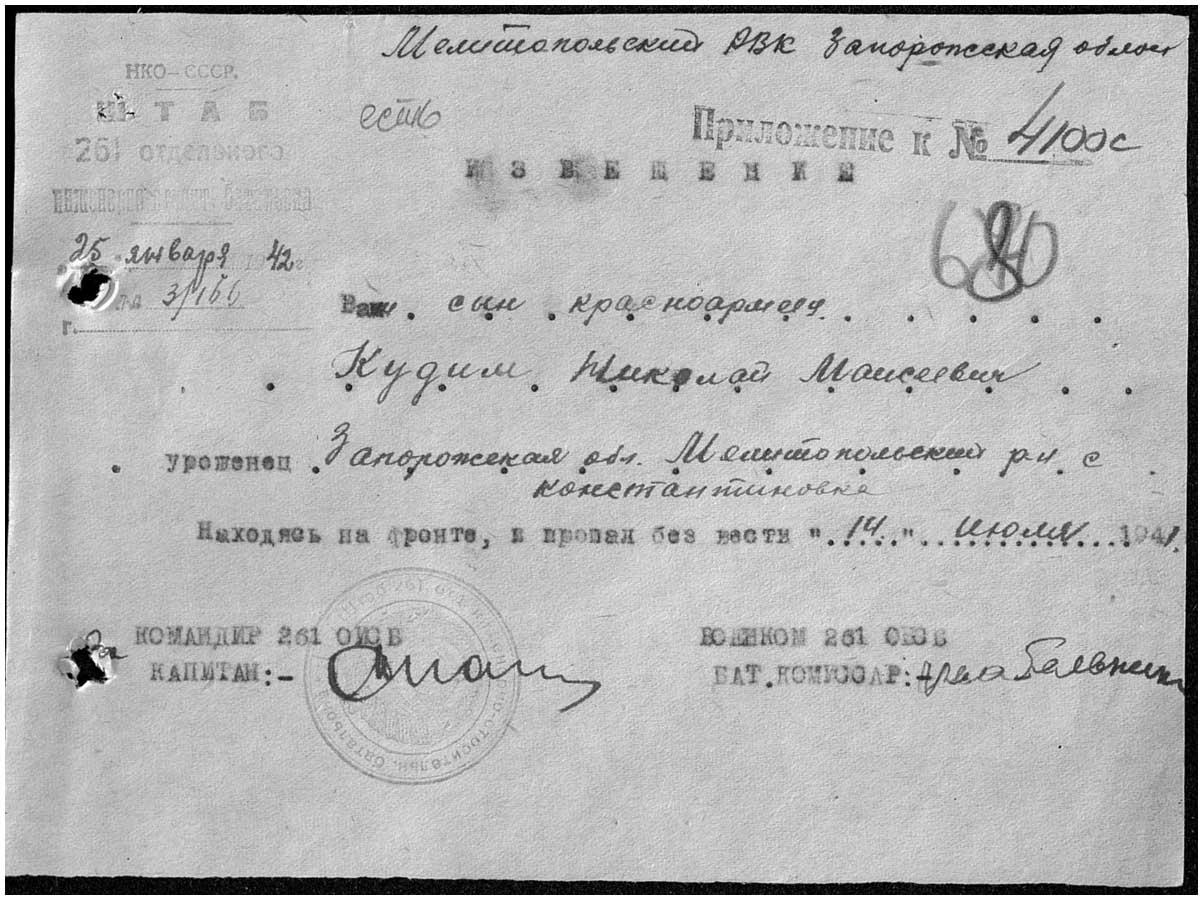 Мелитопольский РВК Запорожская област
НКО–СССР.
ШТАБ
261 отдельного
инженерно строит. батальона
25 января 1942 г.
3/166
г.
есть
Приложение к № 4100с
ИЗВЕЩЕНИЕ
680
Ваш сын красноармеец
Кудим Николай Моисеевич
уроженец Запорожская обл. Мелитопольский р-н с
константиновка
Находясь на фронте, и пропал без вести "14" июля 1941.
КОМАНДИР 261 ОИСБ
КАПИТАН:-
ВОЕНКОМ 261 ОИСБ
БАТ.КОМИССАР:-